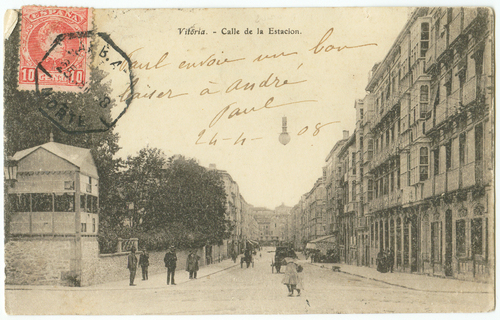 ESPAÑA
10 CENTIMOS 10
NORTE
Vitoria. - Calle de la Estacion.
Paul envoie un bon
baiser à André,
Paul
24-4-08